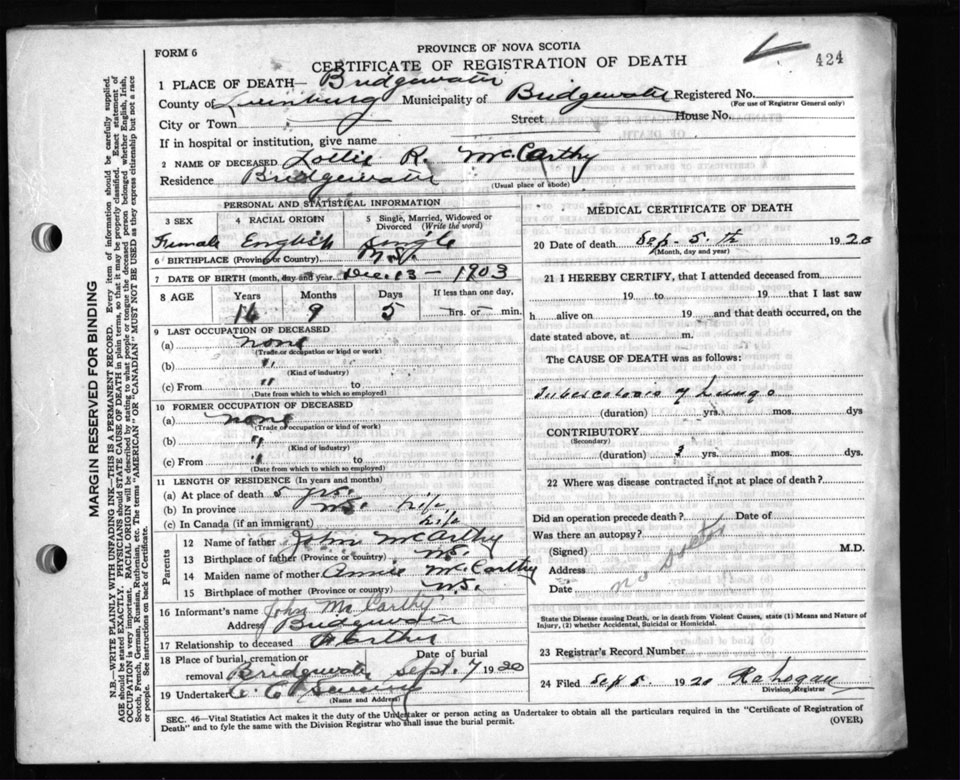 FORM 6
PROVINCE OF NOVA SCOTIA
CERTIFICATE OF REGISTRATION OF DEATH
424
1 PLACE OF DEATH— Bridgewater
County of Lunenburg Municipality of Bridgewater Registered No.
(For use of Registrar General only)
City or Town Street House No.
If in hospital or institution, give name
2 NAME OF DECEASED Lottie R. McCarthy
Residence Bridgewater (Usual place of abode)
PERSONAL AND STATISTICAL INFORMATION
3 SEX 4 RACIAL ORIGIN 5 Single, Married, Widowed or Divorced (Write the word)
Female English single
6 BIRTHPLACE (Province or Country) N.S.
7 DATE OF BIRTH (month, day and year) Dec. 13 — 1903
8 AGE Years Months Days If less than one day,
16 9 5 hrs. or min.
9 LAST OCCUPATION OF DECEASED
(a) none
(Trade or occupation or kind or work)
(b) "
(Kind of industry)
(c) From " to
(Date from which to which so employed)
10 FORMER OCCUPATION OF DECEASED
(a) none
(Trade or occupation or kind of work)
(b) "
(Kind of industry)
(c) From " to
(Date from which to which so employed)
11 LENGTH OF RESIDENCE (In years and months)
(a) At place of death 5 yrs.
(b) In province N.S. life
(c) In Canada (if an immigrant) life
Parents
12 Name of father John McCarthy
13 Birthplace of father (Province or country) N.S.
14 Maiden name of mother Annie McCarthy
15 Birthplace of mother (Province or country) N.S.
16 Informant's name John McCarthy
Address Bridgewater
17 Relationship to deceased
18 Place of burial, cremation or removal Bridgewater Date of burial Sept. 7 1920
19 Undertaker
(Name and Address)
MEDICAL CERTIFICATE OF DEATH
20 Date of death Sep. 5. th 1920
(Month, day and year)
21 I HEREBY CERTIFY, that I attended deceased from
19 to 19 that I last saw
h alive on 19 and that death occurred, on
date stated above, at m.
The CAUSE OF DEATH was as follows:
Tuberculosis of Lungs
(duration) yrs. mos. dys
CONTRIBUTORY
(Secondary)
(duration) 3 yrs. mos. dys.
22 Where was disease contracted if not at place of death?
Did an operation precede death? Date of
Was there an autopsy?
(Signed) M.D.
Address
Date
no doctor
State the Disease causing Death, or in death from Violent Causes, state (1) Means and Nature of Injury, (2) whether Accidental, Suicidal or Homicidal.
23 Registrar's Record Number
24 Filed Sep 5. 1920
Division Registrar
SEC. 46—Vital Statistics Act makes it the duty of the Undertaker or person acting as Undertaker to obtain all the particulars required in the "Certificate of Registration of
Death" and to fyle the same with the Division Registrar who shall issue the burial permit. (OVER)
MARGIN RESERVED FOR BINDING
N.B.—WRITE PLAINLY WITH UNFADING INK—THIS IS A PERMANENT RECORD. Every item of information should be carefully supplied.
AGE should be stated EXACTLY. PHYSICIANS should STATE CAUSE OF DEATH in plain terms, so that it may be properly classified. Exact statement of
OCCUPATION is very important. RACIAL ORIGIN will be described by stating to what people or tongue the deceased person belonged whether English, Irish,
Scotch, French, German, Russian, Ruthenian, etc. The terms "AMERICAN" OR "CANADIAN" MUST NOT BE USED as they express citizenship but not a race
or people. See instructions on back of Certificate.